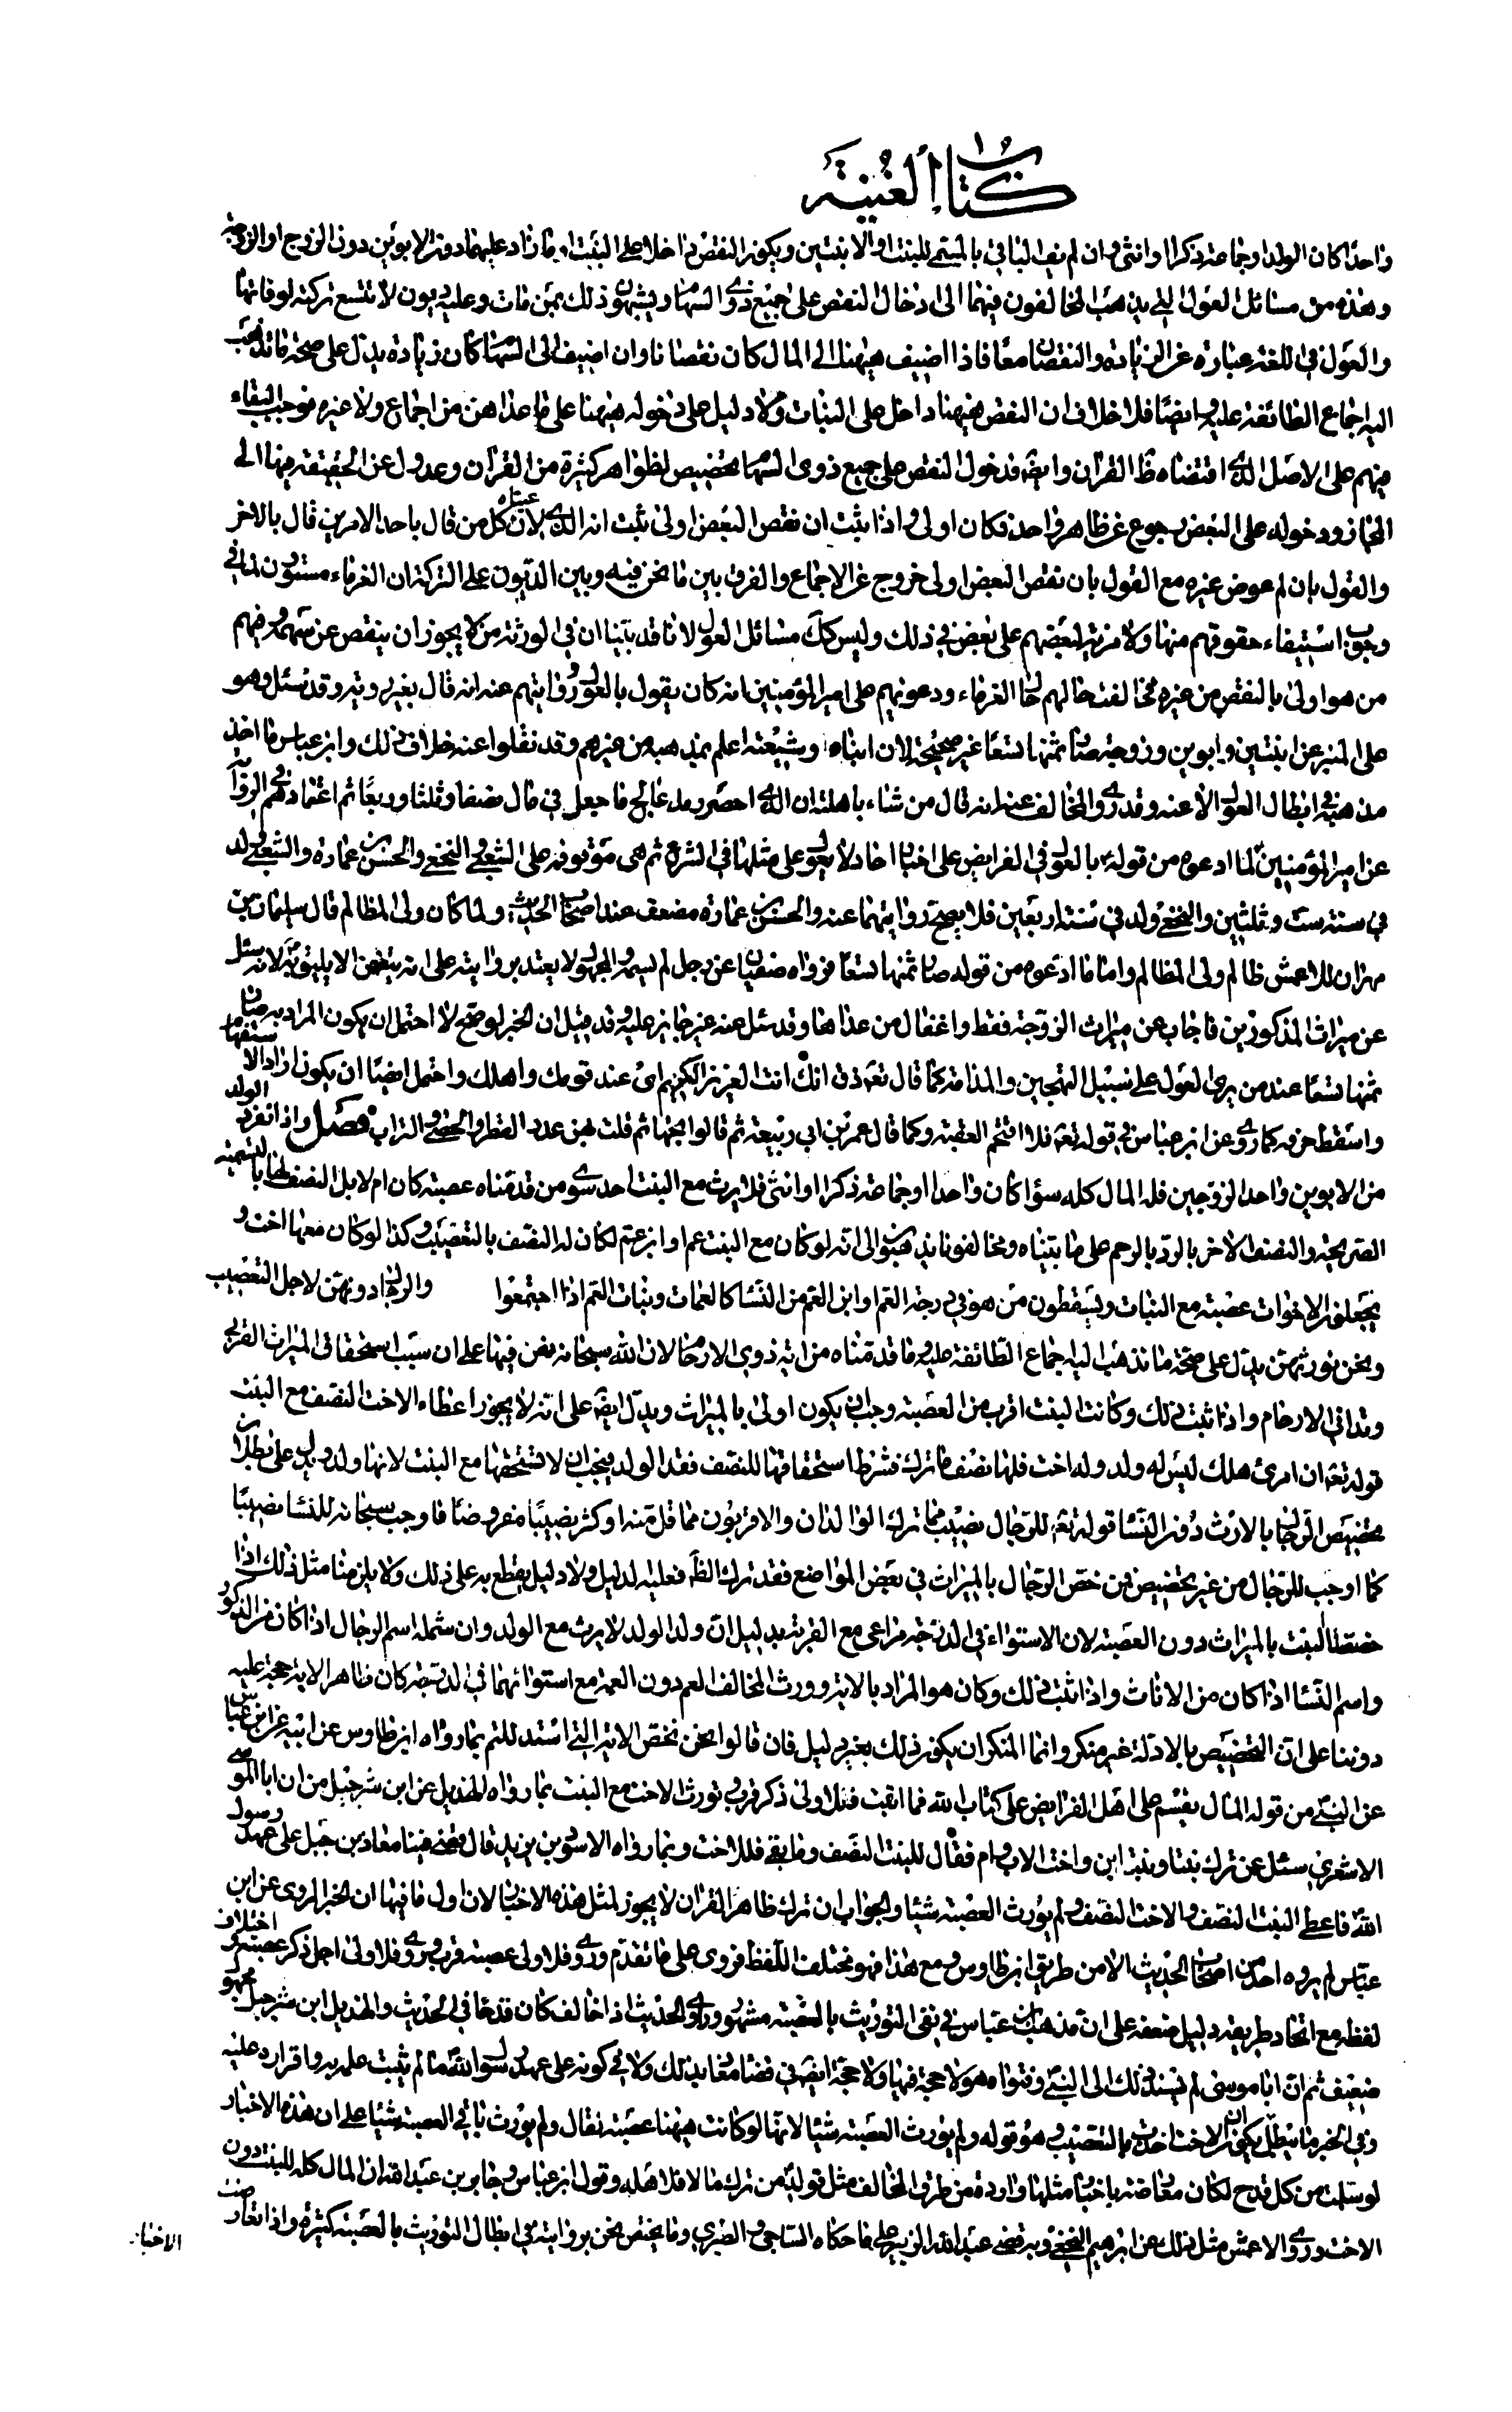 كتاب الغنية
واحدا كان الولد او جماعة ذكرا او انثى وان لم يف الباقي بالمسمى للبنت او الابنتين ويكون النقص داخلا على البنت او ما زاد عليها دون الابوين دون الزوج او الزوجة
وهذه من مسائل العول التي يذهب المخالفون فيها الى ادخال النقص على جميع ذوي السهام ويشبهون ذلك بمن مات وعليه ديون لا تتسع تركته لوفائها
والعول في اللغة عبارة عن الزيادة والنقصان معا فاذا اضيف ههنا الى المال كان نقصانا وان اضيف الى السهام كان زيادة يدل على صحة ما نذهب
اليه اجماع الطائفة عليه وايضا فلا خلاف ان النقص ههنا داخل على البنات ولا دليل على دخوله ههنا على ما عداهن من اجماع ولا غيره فوجب البقاء
فيهم على الاصل الذي اقتضاه ظا القران وايضا فدخول النقص على جميع ذوي السهام تخصيص لظواهر كثيرة من القران وعدول عن الحقيقة فيها الى
المجاز ودخوله على البعض رجوع عن ظاهر واحد فكان اولى واذا ثبت ان نقص البعض اولى ثبت انه الذي عيناه لان كل من قال باحد الامرين قال بالاخر
والقول بان لم عوض غيره مع القول بان نقص البعض اولى خروج عن الاجماع والفرق بين ما نحن فيه وبين الديون على التركة ان الغرماء مستوون في
وجوب استيفاء حقوقهم منها ولا مزية لبعضهم على بعض في ذلك وليس كك مسائل العول لانا قد بينا ان في الورثة من لا يجوز ان ينقص عن سهمه وفيهم
من هو اولى بالنقص من غيره فخالفت حالهم حال الغرماء ودعويهم على امير المؤمنين انه كان يقول بالعول وروايتهم عنه انه قال بغير روية وقد سئل وهو
على المنبر عن ابنتين وابوين وزوجة صار ثمنها تسعا غير صحيحة لان ابناه وشيعته اعلم بمذهبه من غيرهم وقد نقلوا عنه خلاف ذلك وابن عباس ما اخذ
مذهبه في ابطال العول الا عنه وقد روي المخالف عنه انه قال من شاء باهلته ان الذي احصى رمل عالج ما جعل في مال نصفا وثلثا وربعا ثم اعتمادهم في الرواية
عن امير المؤمنين لما ادعوه من قوله بالعول في الفرايض على اخبار احاد لا يعول على مثلها في الشرع ثم هي موقوفة على الشعبي والنخعي والحسن بن عمارة والشعبي ولد
في سنة ست وثلثين والنخعي ولد في سنة اربعين فلا يصح روايتهما عنه والحسن بن عمارة مضعف عند اصحاب الحديث ولما كان ولى المظالم قال سليمان بن
مهران للاعمش ظالم ولى المظالم واما ما ادعوه من قوله صار ثمنها تسعا فرواه سفيان عن رجل لم يسمه والمجهول لا يعتد بروايته على انه يتضمن الا يليق به لانه سئل
عن ميراث المذكورين فاجاب عن ميراث الزوجة فقط واغفال من عداها وقد سئل عنه غير جايز عليه وقد قيل ان الخبر لو صح لاحتمل ان يكون المراد به صار
ثمنها تسعا عند من يرى العول على سبيل التهجين والمذامة كما قال تعه ذق انك انت العزيز الكريم اى عند قومك واهلك واحتمل ايضا ان يكون اراد الاستفهام
واسقط حرفه كما روى عن ابن عباس في قوله تعه فلا اقتحم العقبة وكما قال عمر بن ابي ربيعة ثم قالوا تحبها ثم قلت بهرا عدد القطر والحصى والتراب فصل واذا انفرد الولد
من الابوين واحد الزوجين فله المال كله سواء كان واحدا او جماعة ذكرا او انثى فلا يرث مع البنت احد سوى من قدمناه عصبة كان ام لا بل النصف لها بالتسمية
الصريحة والنصف الاخر بالرد بالرحم على ما بيناه ومخالفونا يذهبون الى انه لو كان مع البنت عم او ابن عم لكان له النصف بالتعصيب وكذا لو كان معها اخت و
يجعلون الاخوات عصبة مع البنات ويسقطون من هو في درجة العم او ابن العم من النساء كالعمات وبنات العم اذا اجتمعوا والرجال دونهن لاجل التعصيب
ونحن نورثهن يدل على صحة ما نذهب اليه اجماع الطائفة عليه وما قدمناه من اية ذوي الارحام لان الله سبحانه نص فيها على ان سبب استحقاق الميراث القربى
وتداني الارحام واذا ثبت ذلك وكانت البنت اقرب من العصبة وجب ان يكون اولى بالميراث ويدل ايضا على انه لا يجوز اعطاء الاخت النصف مع البنت
قوله تعه ان امرئ هلك ليس له ولد وله اخت فلها نصف ما ترك فشرط استحقاقها للنصف فقد الولد فيجب ان لا تستحقها مع البنت لانها ولد ويدل على بطلان
تخصيص الرجال بالارث دون النساء قوله تعه للرجال نصيب مما ترك الوالدان والاقربون مما قل منه او كثر نصيبا مفروضا فاوجب سبحانه للنساء نصيبا
كما اوجب للرجال من غير تخصيص فمن خص الرجال بالميراث في بعض المواضع فقد ترك الظ فعليه الدليل ولا دليل يقطع به على ذلك ولا يلزمنا مثل ذلك اذا
خصصنا البنت بالميراث دون العصبة لان الاستواء في الدرجة مراعى مع القرابة بدليل ان ولد الولد لا يرث مع الولد وان شمله اسم الرجال اذا كان من الذكور
واسم النساء اذا كان من الاناث واذا ثبت ذلك وكان هو المراد بالاية وورث المخالف العم دون العمة مع استوائهما في الدرجة كان ظاهر الاية حجة عليه
دوننا على ان التخصيص بالادلة غير منكر وانما المنكر ان يكون ذلك بغير دليل فان قالوا نحن نخص الاية التي استدللتم بما رواه ابن طاوس عن ابيه عن ابن عباس
عن النبي من قوله المال يقسم على اهل الفرايض على كتاب الله فما ابقت فلاولى ذكر قرب وتورث الاخت مع البنت بما رواه الهذيل عن ابن شرحبيل من ان ابا موسى
الاشعري سئل عن ترك بنتا وبنت ابن واخت لاب وام فقال للبنت النصف وما بقي فللاخت وبما رواه الاسود بن يزيد قال قضى فينا معاذ بن جبل على عهد رسول
الله فاعطى البنت النصف والاخت النصف ولم يورث العصبة شيئا والجواب ان ترك ظاهر القران لا يجوز لمثل هذه الاخبار لان اول ما فيها ان الخبر المروى عن ابن
عباس لم يروه احد من اصحاب الحديث الا من طريق ابن طاوس ومع هذا فهو مختلف اللفظ فروى على ما تقدم وروى فلاولى عصبة قرب وروى فلاولى اجل ذكر عصبة واختلاف
لفظه مع اتحاد طريقه دليل ضعفه على ان مذهب ابن عباس في نفي التوريث بالعصبة مشهور وراوى الحديث اذا خالفه كان قدحا في الحديث والهذيل ابن شرحبيل مجهول
ضعيف ثم ان ابا موسى لم يسند ذلك الى النبي وفتواه هو لا حجة فيها ولا حجة ايضا في قضاء معاذ بذلك ولا في كونه على عهد رسول الله ما لم يثبت علمه به واقراره عليه
وفي الخبر ما يبطل ان يكون الاخت اخذت بالتعصيب وهو قوله ولم يورث العصبة شيئا لانها لو كانت ههنا عصبة لقال ولم يورث باقي العصبة شيئا على ان هذه الاخبار
لو سلمت من كل قدح لكان معارضة باخبار مثلها واردة من طرق المخالف مثل قوله من ترك مالا فلاهله وقول ابن عباس وجابر بن عبد الله ان المال كله للبنت دون
الاخت وروى الاعمش مثل ذلك عن ابراهيم النخعي وبه قضى عبد الله الزبير على ما حكاه الساجي والطبري وما يختص نحن بروايته في ابطال التوريث بالعصبة كثيرة واذا تعارضت
الاخبار